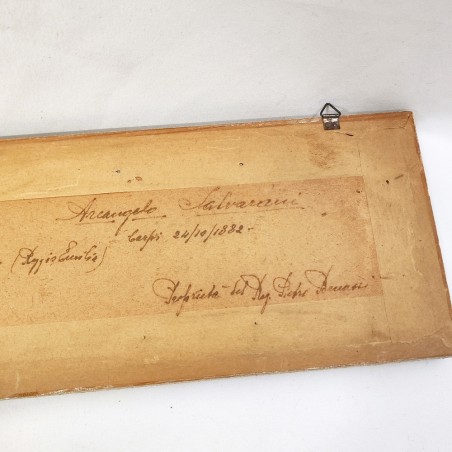 Arcangelo Salvarani
Carpi 24/10/1882-
(Reggio Emilia)
Proprietà del Rag. Pietro